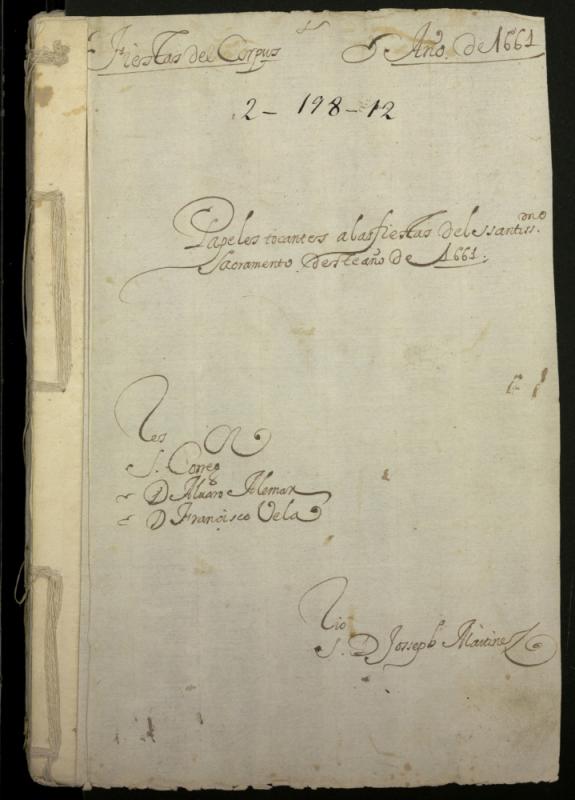 Fiestas del Corpus Año. de 1661
2 - 198 - 12
Papeles tocantes a las fiestas del Ssantiss.mo
Sacramento deste año de 1661.
S. Correg
D Aluaro Aleman
D Francisco Vela
S. D Josseph Martinez